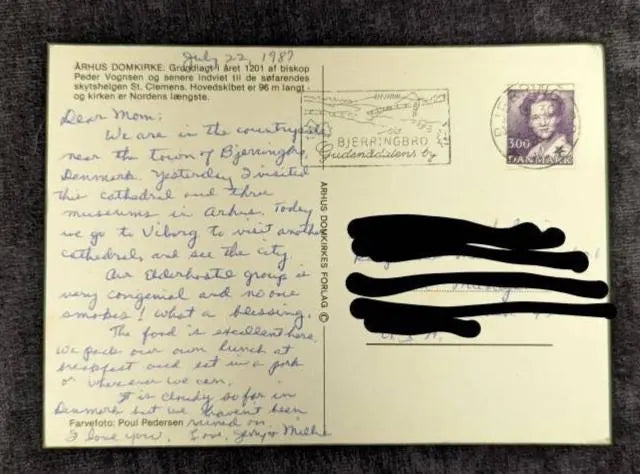 July 22, 1987
ÅRHUS DOMKIRKE: Grundlagt i året 1201 af biskop
Peder Vognsen og senere indviet til de søfarendes
skytshelgen St. Clemens. Hovedskibet er 96 m langt
og kirken er Nordens længste.
Dear Mom:
We are in the countryside
near the town of Bjerringbro,
Denmark. Yesterday I visited
this cathedral and three
museums in Arhus. Today
we go to Viborg to visit another
cathedral and see the city.
Our Elderhostel group is
very congenial and no one
smokes! What a blessing.
The food is excellent here.
We pack our own lunch at
breakfast and eat in a park
or wherever we can.
It is cloudy so far in
Denmark but we haven't been
rained on.
Farvefoto: Poul Pedersen
I love you. Love,
ÅRHUS DOMKIRKES FORLAG ©
BJERRINGBRO
Gudenådalens by
BJERRINGBRO
3.00
DANMARK